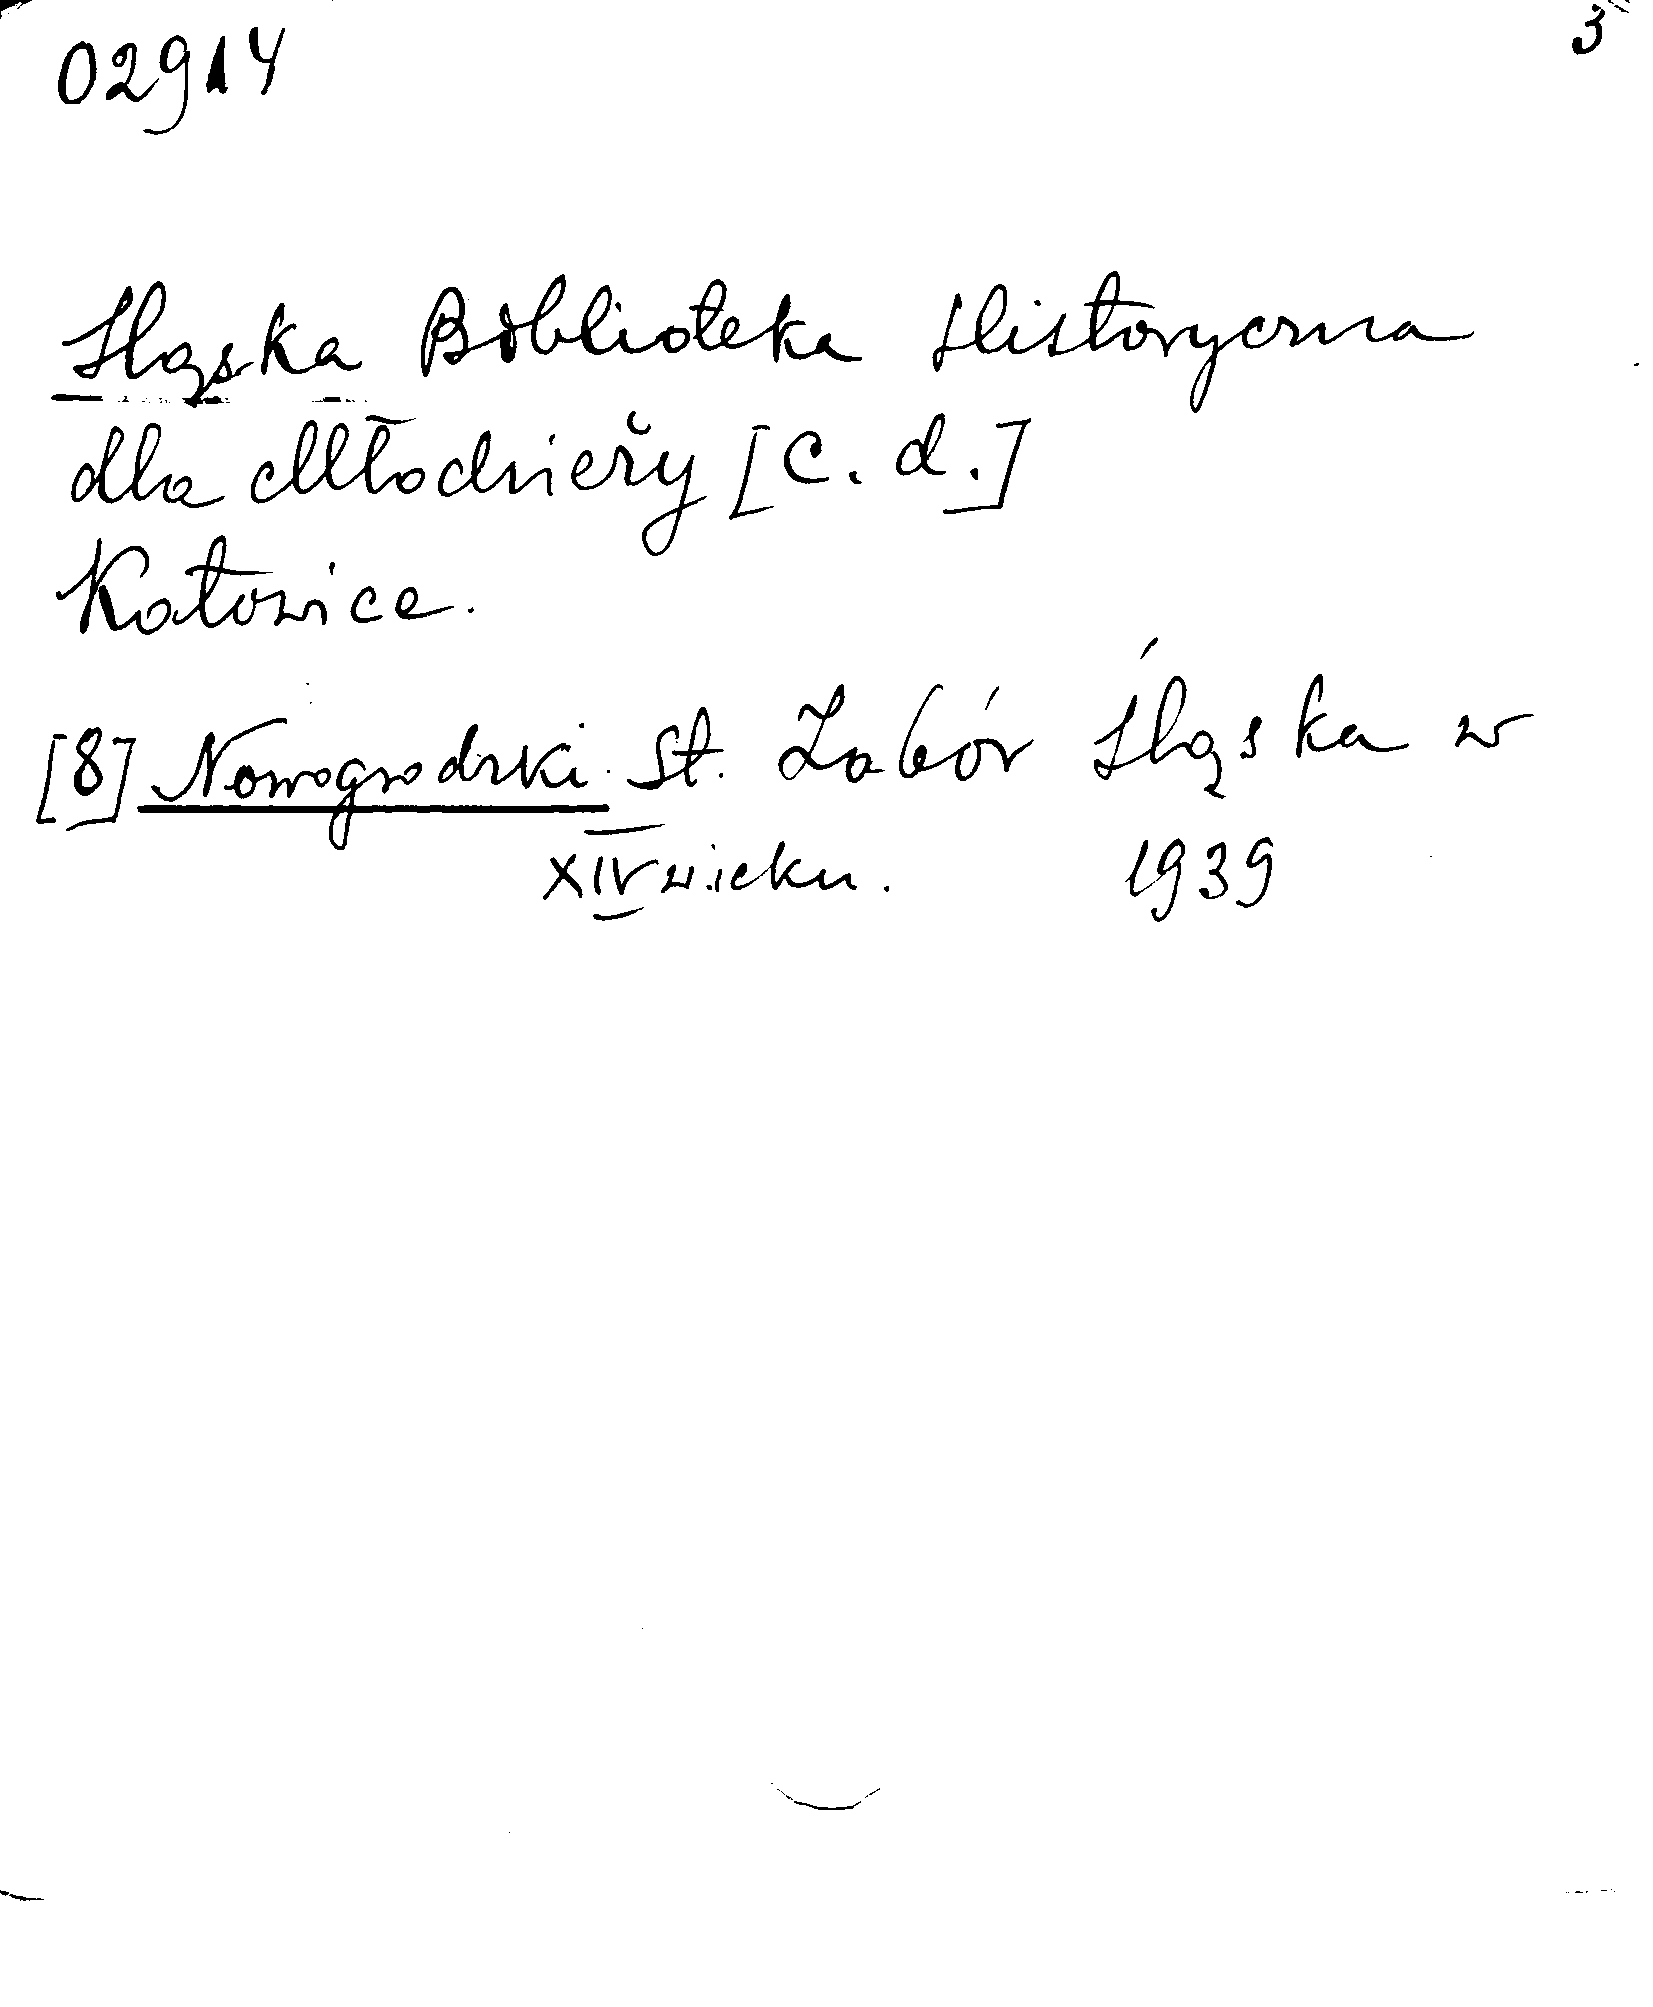 02914
3
Śląska Biblioteka Historyczna
dla Młodzieży [c. d.]
Katowice.
[8] Nowogrodzki St. Zabór Śląska w
XIV wieku. 1939